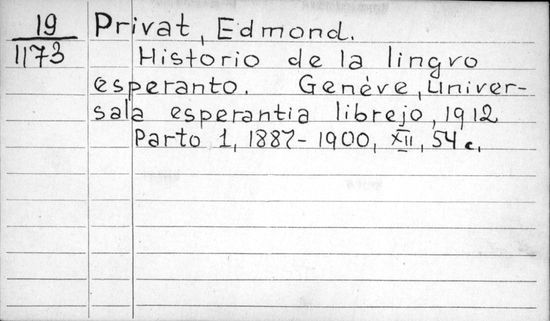 19
1173
Privat, Edmond.
Historio de la lingvo
esperanto. Genève, Univer-
sala esperantia librejo, 1912
Parto 1, 1887-1900, XII, 54 c.